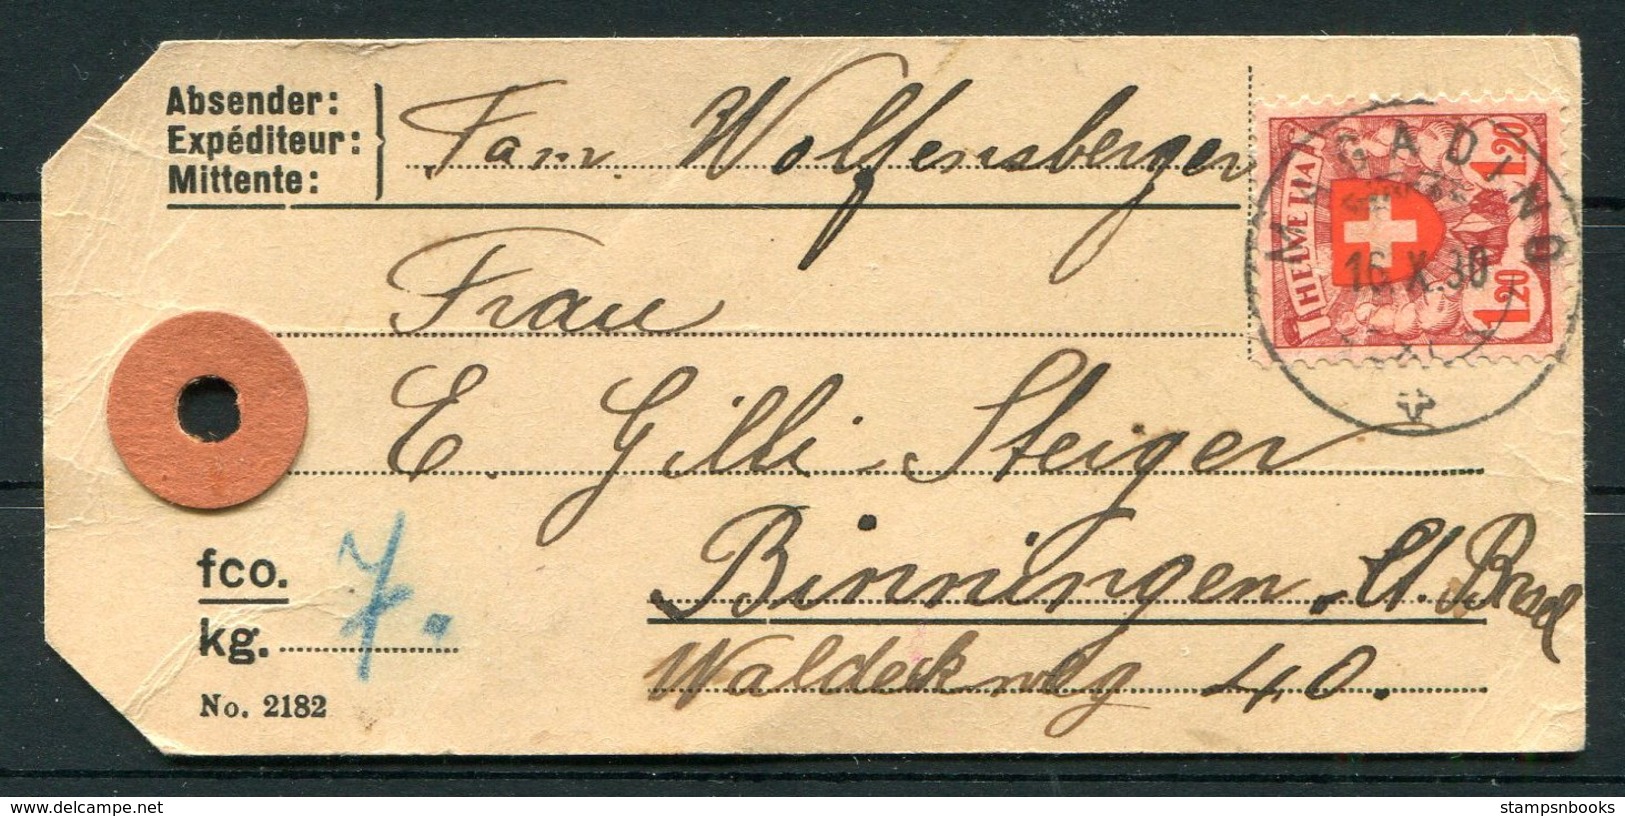 Absender:
Expéditeur:
Mittente:
Fam. Wolfensberger
MAGADINO
16.X.30
HELVETIA
1.20
1.20
Frau
E. Gilli-Steiger
Binningen
Waldeckweg 40.
fco.
kg. 7.
No. 2182
www.delcampe.net
stampsnbooks